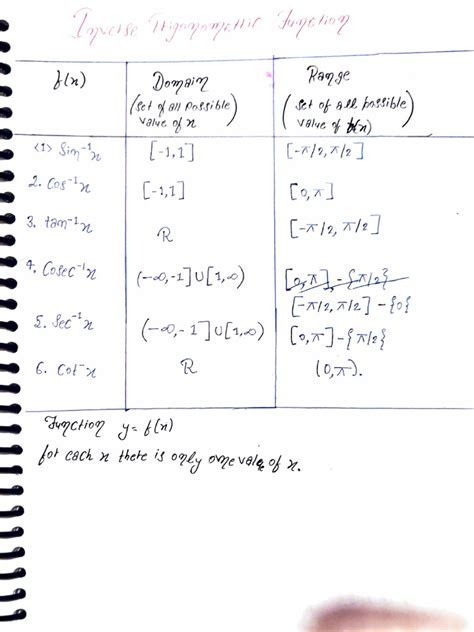 Inverse Trigonometric Function
f(x) Domain (set of all possible value of x) Range (set of all possible value of f(x))
<1> Sin⁻¹x [-1,1] [-π/2, π/2]
2. Cos⁻¹x [-1,1] [0,π]
3. tan⁻¹x R [-π/2, π/2]
4. Cosec⁻¹x (-∞,-1]∪[1,∞) [0,π]-{π/2}
[-π/2, π/2]-{0}
5. Sec⁻¹x (-∞,-1]∪[1,∞) [0,π]-{π/2}
6. Cot⁻x R (0,π).
Function y=f(x)
for each x there is only one value of x.